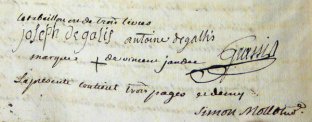 et bouillon de trois livres
joseph degalis antoine degallis
marques + de vincens jaudee Grassis
La presente contient trois pages et demy
Simon Mollot nre